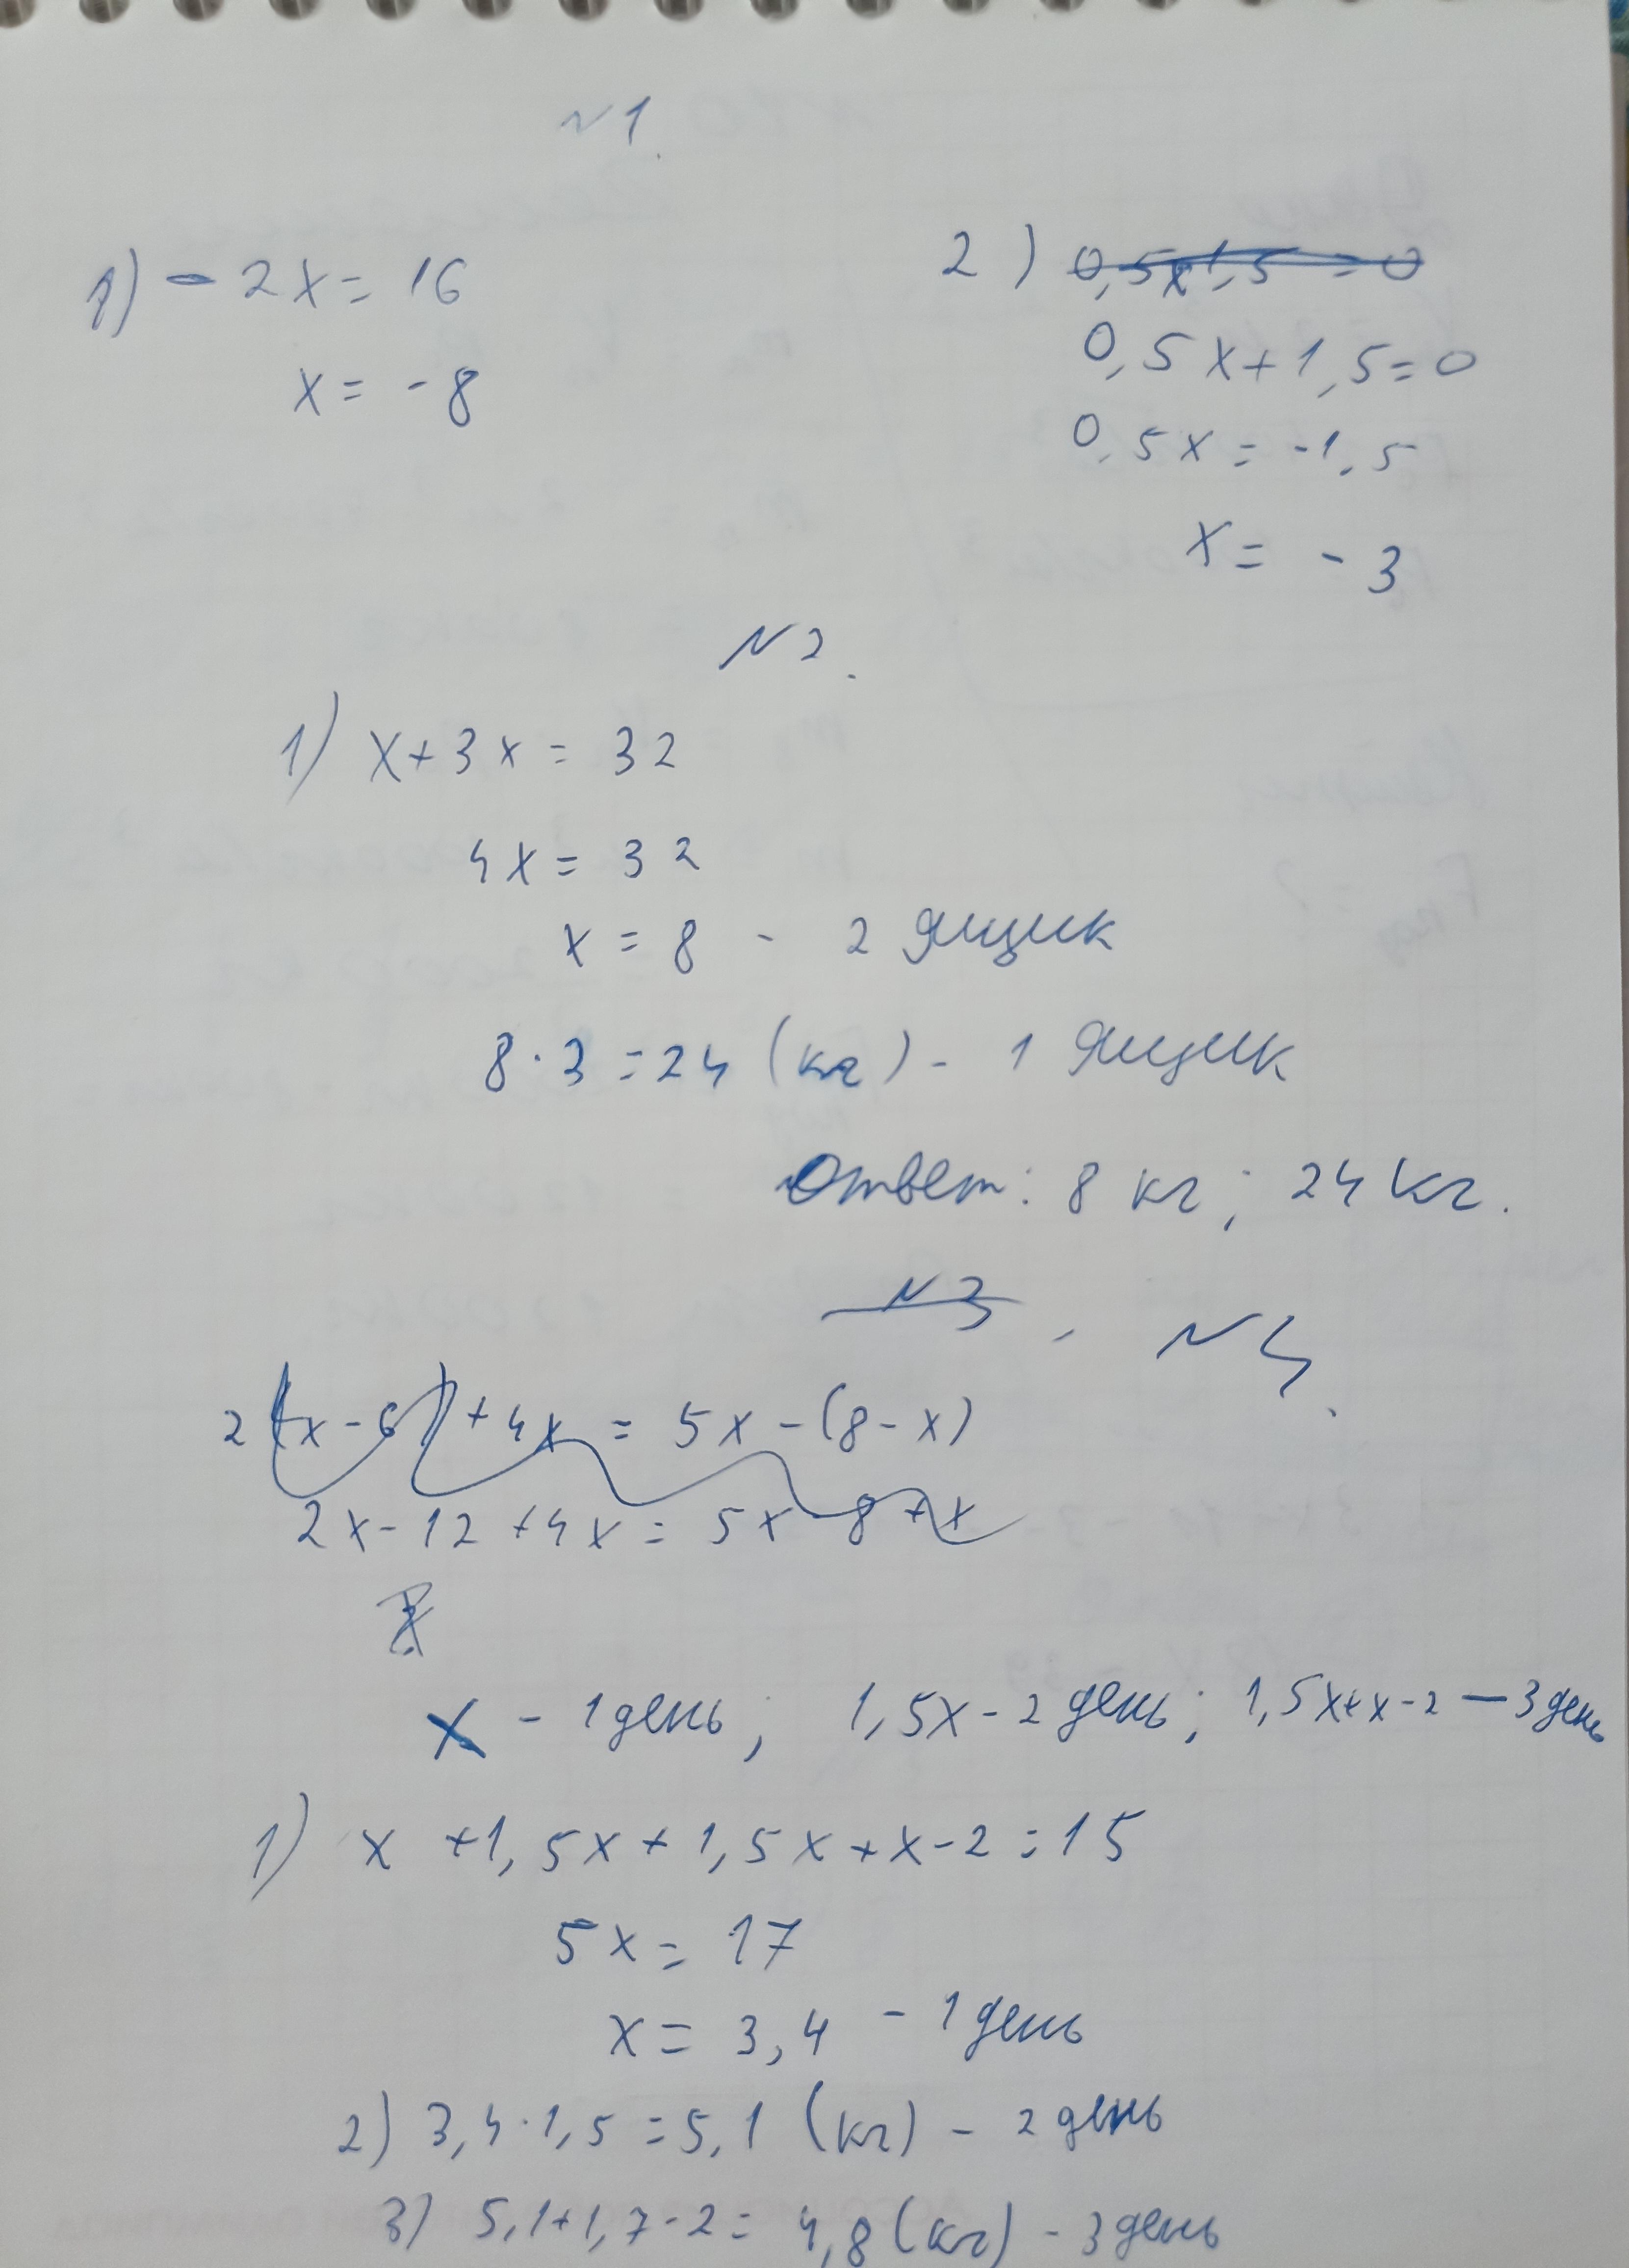 №1.
1) - 2x = 16
x = - 8
2) 0,5x+1,5 = 0
0,5x+1,5=0
0,5x = -1,5
x = - 3
№2.
1) x+3x = 32
4x = 32
x = 8 - 2 ящик
8·3 = 24 (кг) - 1 ящик
Ответ: 8 кг; 24 кг.
№3. №4.
2(x-6)+4x = 5x-(8-x)
2x-12+4x = 5x-8+x
x - 1 день; 1,5x - 2 день; 1,5x+x-2 — 3 день
1) x +1,5x+1,5x+x-2=15
5x = 17
x = 3,4 - 1 день
2) 3,4·1,5 = 5,1 (кг) - 2 день
3) 5,1+1,7-2= 4,8 (кг) - 3 день